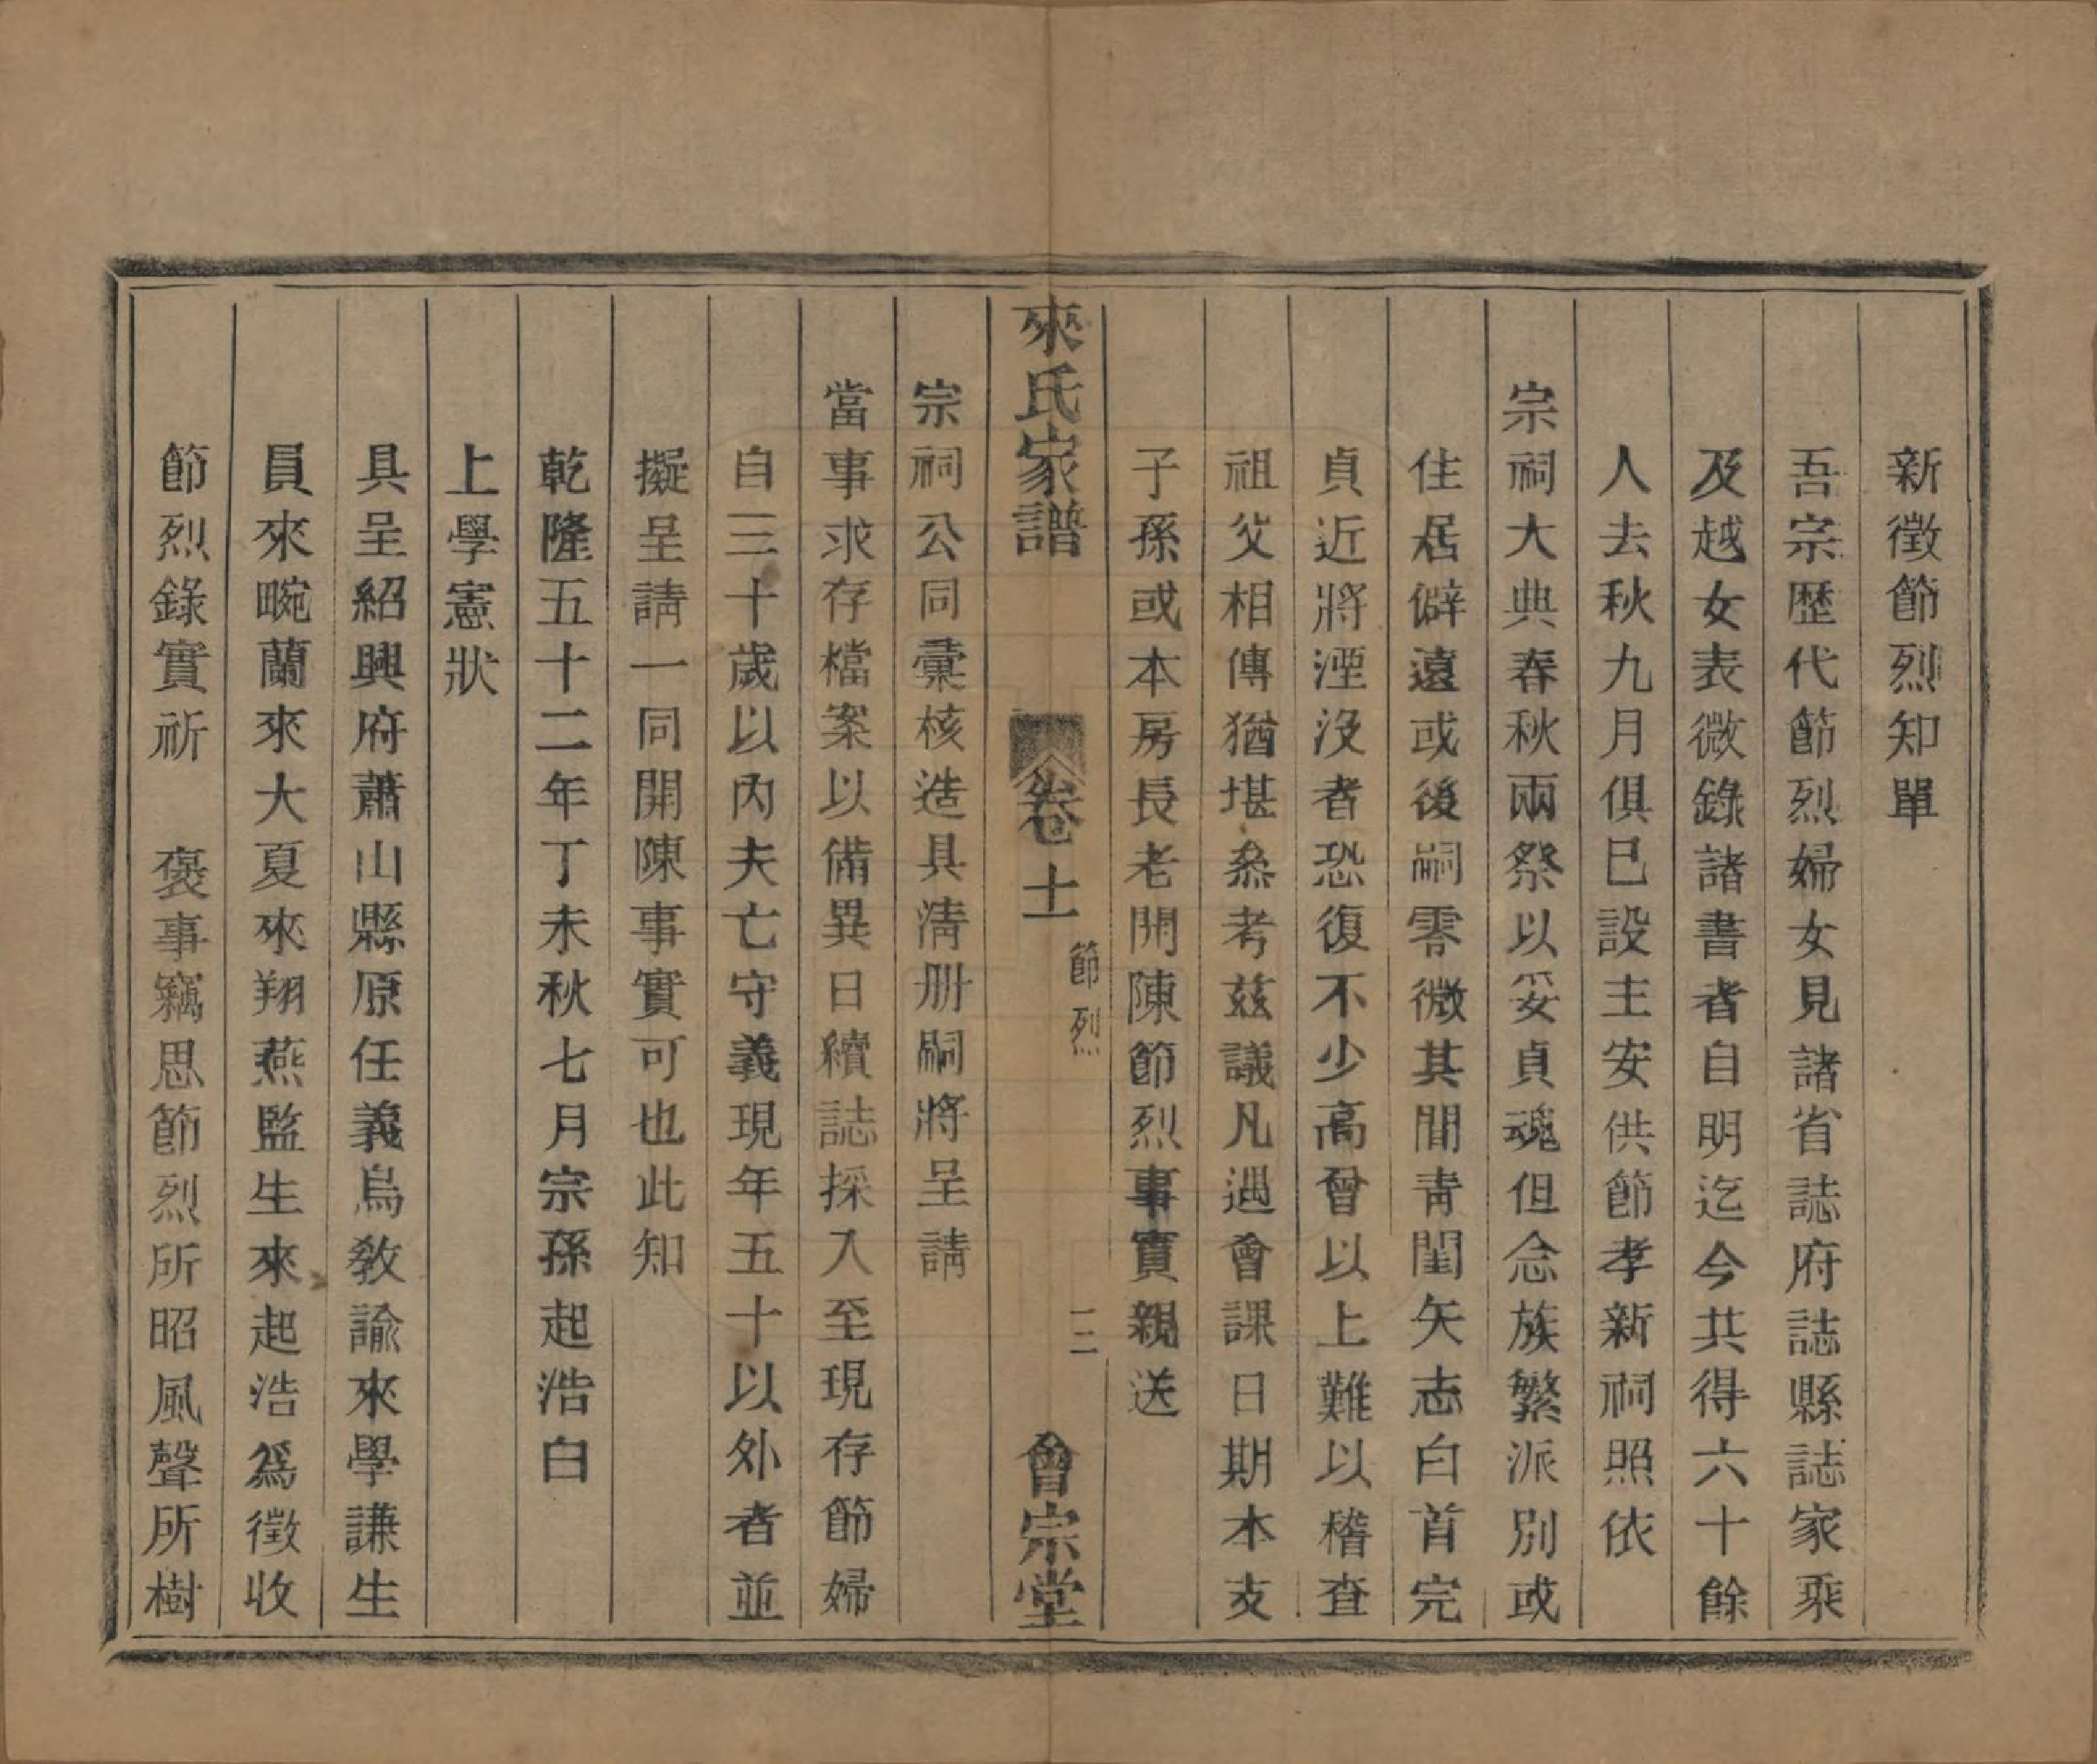 新徵節烈知單
吾宗歷代節烈婦女見諸省誌府誌縣誌家乘
及越女表微錄諸書者自明迄今共得六十餘
人去秋九月俱已設主安供節孝新祠照依
宗祠大典春秋兩祭以妥貞魂但念族繁派別或
住居僻遠或後嗣零微其間靑閨矢志白首完
貞近將湮沒者恐復不少高曾以上難以稽查
祖父相傳猶堪叅考茲議凡遇會課日期本支
子孫或本房長老開陳節烈事實親送
來氏家譜
卷十一
節烈
二
會宗堂
宗祠公同彙核造具淸册嗣將呈請
當事求存檔案以備異日續誌採入至現存節婦
自三十歲以內夫亡守義現年五十以外者並
擬呈請一同開陳事實可也此知
乾隆五十二年丁未秋七月宗孫起浩白
上學憲狀
具呈紹興府蕭山縣原任義烏教諭來學謙生
員來畹蘭來大夏來翔燕監生來起浩爲徵收
節烈錄實祈　褒事竊思節烈所昭風聲所樹